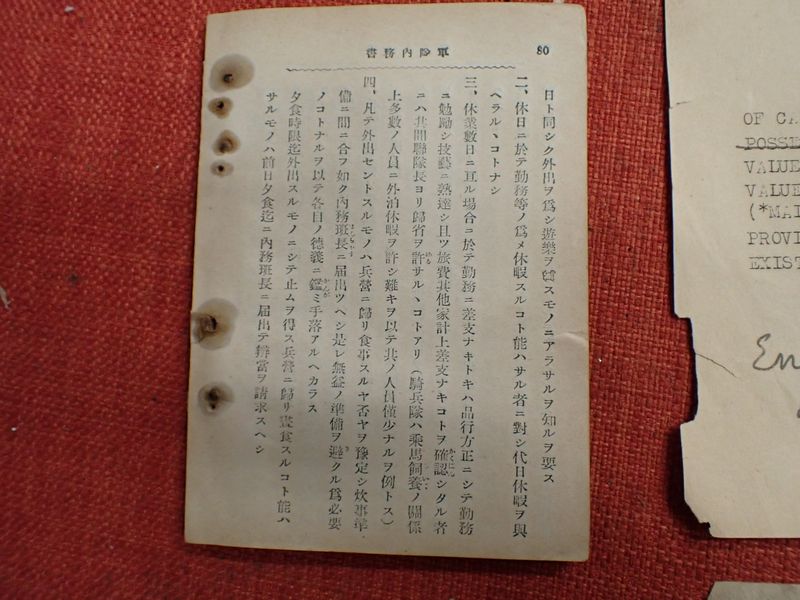 軍隊內務書
80
日ト同シク外出ヲ爲シ遊樂ヲ爲スモノニアラサルヲ知ルヲ要ス
二、休日ニ於テ勤務等ノ爲メ休暇スルコト能ハサル者ニ對シ代日休暇ヲ與
ヘラルヽコトナシ
三、休業數日ニ亙ル場合ニ於テ勤務ニ差支ナキトキハ品行方正ニシテ勤務
ニ勉勵シ技藝ニ熟達シ且ツ旅費其他家計上差支ナキコトヲ確認シタル者
ニハ其間聯隊長ヨリ歸省ヲ許サルヽコトアリ(騎兵隊ハ乘馬飼養ノ關係
上多數ノ人員ニ外泊休暇ヲ許シ難キヲ以テ其ノ人員僅少ナルヲ例トス)
四、凡テ外出セントスルモノハ兵營ニ歸リ食事スルヤ否ヤヲ豫定シ炊事準
備ニ間ニ合フ如ク內務班長ニ屆出ツヘシ是レ無益ノ準備ヲ避クル爲必要
ノコトナルヲ以テ各自ノ德義ニ鑑ミ手落アルヘカラス
夕食時限迄外出スルモノニシテ止ムヲ得ス兵營ニ歸リ晝食スルコト能ハ
サルモノハ前日夕食迄ニ內務班長ニ屆出テ辨當ヲ請求スヘシ
OF CA
POSSE
VALUE
VALUE
(*MAI
PROVI
EXIST
En